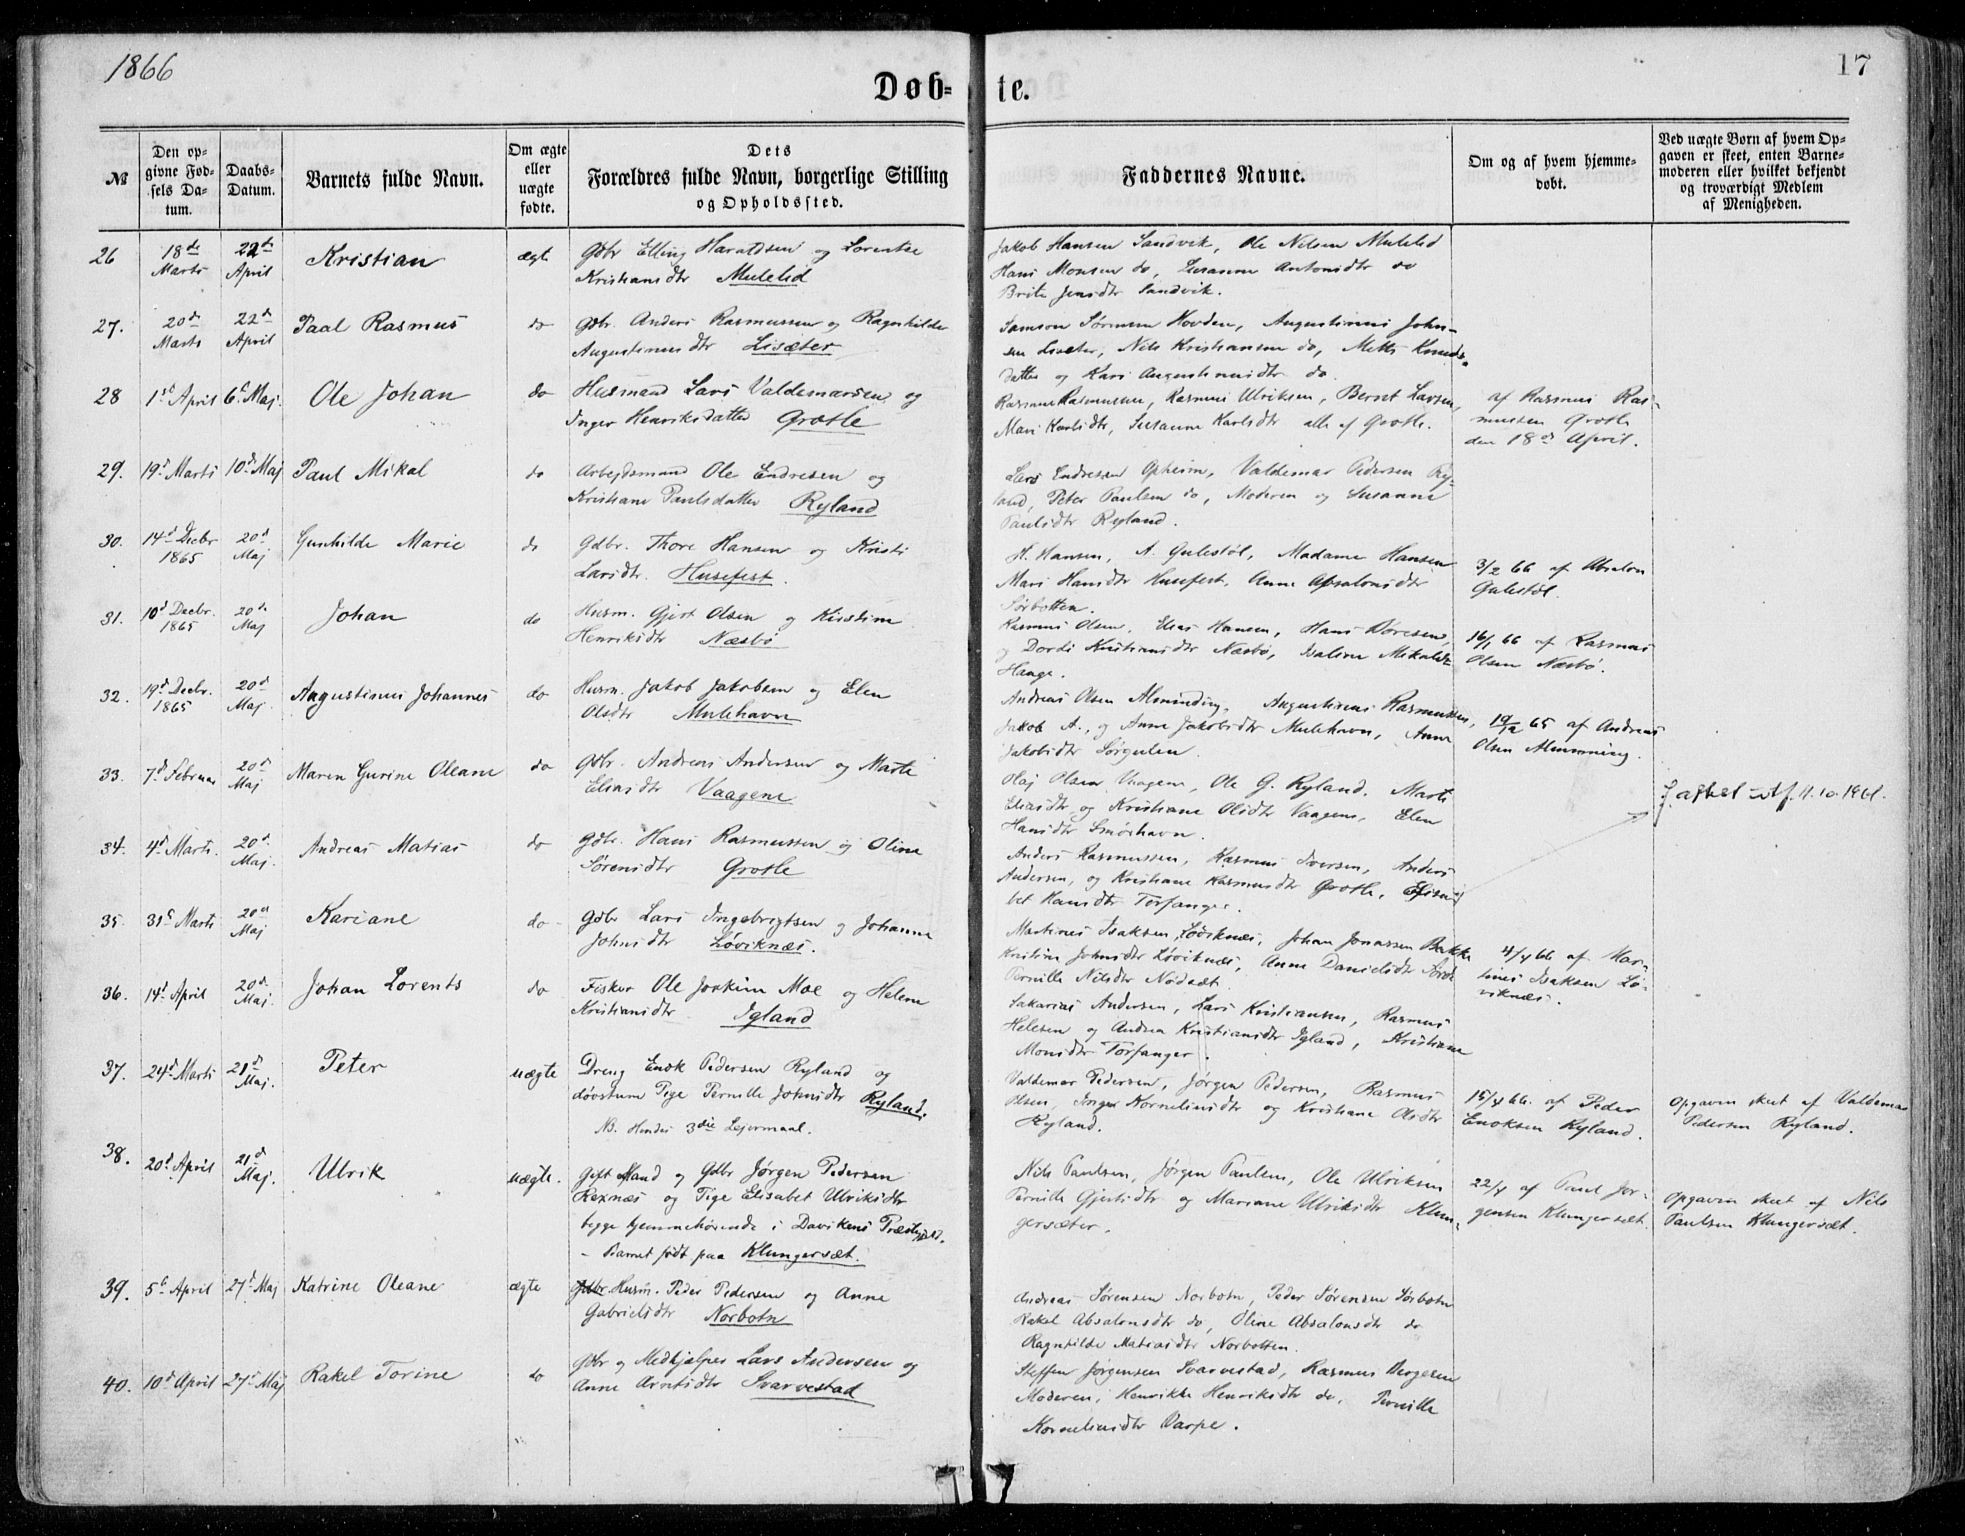 1866
17
Døb-te.
№
Den op-
givne Fød-
sels Da-
tum.
Daabs-
Datum.
Barnets fulde Navn.
Om ægte
eller
uægte
fødte.
Dets
Forældres fulde Navn, borgerlige Stilling
og Opholdssted.
Faddernes Navne.
Om og af hvem hjemme-
døbt.
Ved uægte Børn af hvem Op-
gaven er skeet, enten Barne-
moderen eller hvilket bekjendt
og troværdigt Medlem
af Menigheden.
26
18de
Marts
22de
April
Kristian
ægte
Gdbr Elling Haraldsen og Lorentse
Kristiansdtr Mulelid
Jakob Hansen Sandvik, Ole Nilsen Mulelid
Hans Monsen do, Susanne Antonidtr do
Brite Jensdtr Sandvik.
27.
20de
Marts
22de
April
Paal Rasmus
do
Gdbr. Anders Rasmussen og Ragnhilde
Augustinusdtr Lisæter
Samson Sørensen Hovden, Augustinus John-
sen Lisæter, Nils Kristiansen do, Mette Knuds-
datter og Kari Augustinusdtr do.
28
1st April
6te Maj.
Ole Johan
do
Husmand Lars Valdemarsen og
Inger Henriksdatter Grotle
Rasmus Rasmussen, Rasmus Ulriksen, Bernt Larsen,
Mari Karlsdtr, Susanne Karlsdtr alle af Grotle.
af Rasmus Ras-
mussen Grotle
den 18de April.
29.
19de Marts
10de Maj
Paul Mikal
do
Arbejdsmand Ole Endresen og
Kristiane Paulsdatter Ryland
Lars Endresen Opheim, Valdemar Pedersen Ry-
land, Peter Paulsen do, Moderen og Susanne
Paulsdtr Ryland.
30.
14de Decbr
1865
20de
Maj
Gunhilde Marie
do
Gdbr. Thore Hansen og Kristi
Larsdtr. Husefest.
H. Hansen, A. Gulestøl, Madame Hansen
Mari Hansdtr Husefest, Anne Absalonsdtr
Sørbotten.
3/2 66 af Absalon
Gulestøl.
31.
10de Decbr.
1865
20de
Maj
Johan
do
Husm. Gjert Olsen og Kirstine
Henriksdtr Næsbø
Rasmus Olsen, Elias Hansen, Hans
og Dordi Kristiansdtr Næsbø, Mikalsdtr
Hauge.
16/1 66 af Rasmus
Olsen Næsbø.
32.
19de Decbr.
1865
20de
Maj.
Augustinus Johannes
do
Husm. Jakob Jakobsen og Elen
Olsdtr Mulehavn
Andreas Olsen Alminding, Augustinus Rasmussen,
Jakob A., og Anne Jakobsdtr Mulehavn, Anne
Jakobsdtr Sørgulen.
19/12 65 af Andreas
Olsen Alminding.
33.
7de Februar
20de
Maj
Maren Gurine Oleane
do
Gdbr. Andreas Andersen og Marte
Eliasdtr Vaagene
Olaj Olsen Vaagene, Ole G. Ryland, Marte
Eliasdtr og Kristiane Olsdtr Vaagene, Elen
Hansdtr Smørhavn.
34.
4de Marts.
20de
Maj.
Andreas Matias
do
Gdbr. Hans Rasmussen og Oline
Sørensdtr Grotle
Anders Rasmussen, Rasmus Iversen, Anders
Andersen, og Kristiane Rasmusdtr Grotle,
bet Hansdtr Torfanger.
attest utf. 11.10.1961.
35.
31te Marts
20de
Maj
Kariane
do
Gdbr Lars Ingebrigtsen og Johanne
Johnsdtr Løviknæs.
Martinus Isaksen Løviknæs, Johan Jonassen Bakke
Kristine Johnsdtr Løviknæs, Anne Danielsdtr
Pernille Nilsdtr Nødsæt.
4/4 66 af Mar-
tinus Isaksen Lø-
viknæs.
36.
14de April
20de
Maj.
Johan Lorents
do
Fisker Ole Joakim Moe og Helene
Kristiansdtr Igland
Sakarias Andersen, Lars Kristiansen, Rasmus
Helesen og Andrea Kristiansdtr Igland, Kristiane
Monsdtr Torfanger.
37.
24de Marts
21de
Maj.
Peter
uægte
Dreng Enok Pedersen Ryland og
døvstum Pige Pernille Johnsdtr Ryland.
NB. Hendes 3die Lejermaal.
Valdemar Pedersen, Jørgen Pedersen, Rasmus
Olsen, Inger Korneliusdtr og Kristiane Olsdtr
Ryland.
15/4 66. af Peder
Enoksen Ryland.
Opgaven skeet af Valdemar
Pedersen Ryland.
38.
20de April
21de
Maj.
Ulrik
uægte.
Gift Mand og Gdbr Jørgen Pedersen
Rexnæs og Pige Elisabet Ulriksdtr
begge hjemmehørende i Davikens Præstegjeld.
– Barnet født paa Klungersæt.
Nils Paulsen, Jørgen Paulsen, Ole Ulriksen
Pernille Gjertsdtr og Mariane Ulriksdtr Klun-
gersæter.
22/4 af Paul Jør-
gensen Klungersæt.
Opgaven skeet af Nils
Paulsen Klungersæt.
39.
5te April
27de Maj
Katrine Oleane
ægte
Gdbr. Husm. Peder Pedersen og Anne
Gabrielsdtr Norbotn
Andreas Sørensen Norbotn, Peder Sørensen Sørbotn
Rakel Absalonsdtr do, Oline Absalonsdtr do
Ragnhilde Matiasdtr Norbotten.
40.
10de April
27de Maj
Rakel Torine
do
Gdbr og Medhjælper Lars Andersen og
Anne Arntsdtr Svarvestad
Steffen Jørgensen Svarvestad, Rasmus
Moderen, Henrikke Henriksdtr do, Pernille
Korneliusdtr Varpe.